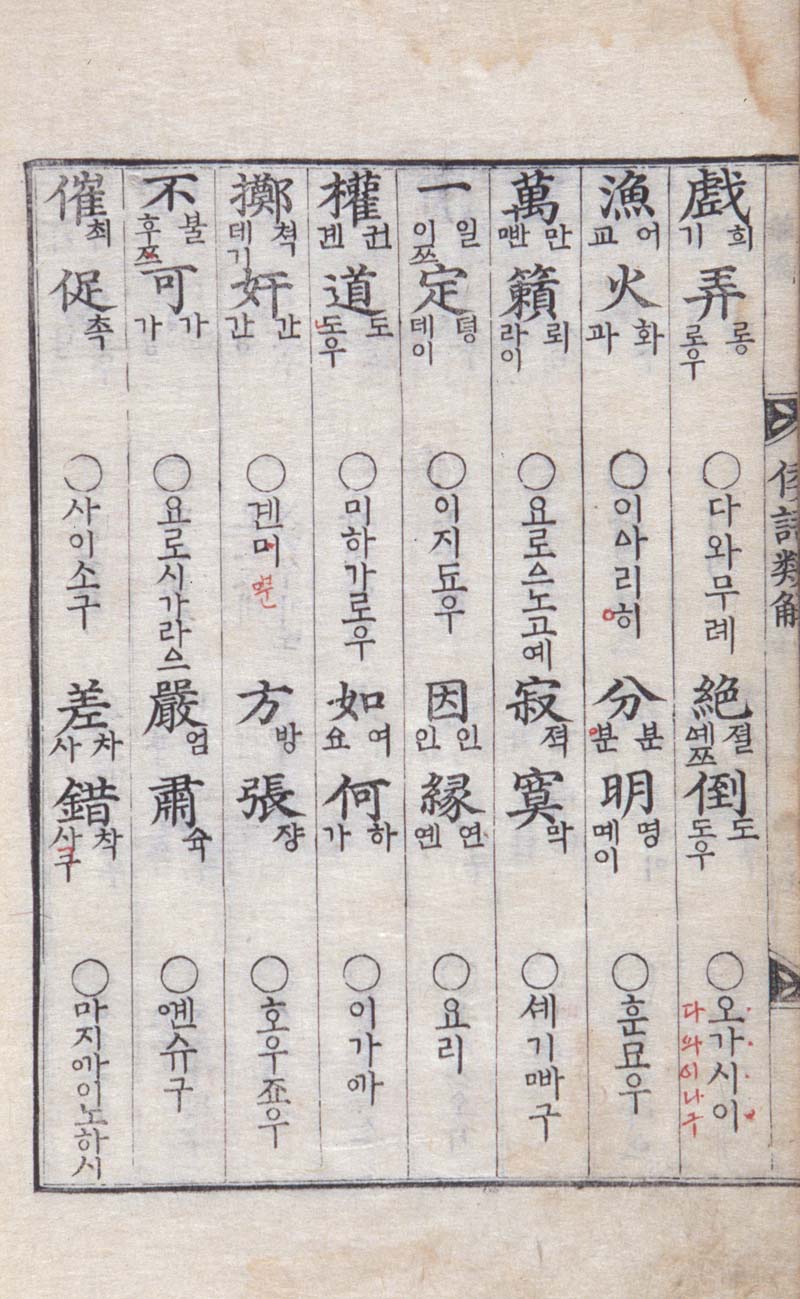 倭語類解
戲 희 기 弄 롱 로우 ○다와무례 絶 졀 졔쯔 倒 도 도우 ○오가시이 다와이나구
漁 어 교 火 화 과 ○이아리히 分 분 뿐 明 명 메이 ○훈묘우
萬 만 ᄜᅡᆫ 籟 뢰 라이 ○요로으노고예 寂 젹 寞 막 ○셰기ᄜᅡ구
一 일 이쯔 定 뎡 데이 ○이지됴우 因 인 인 縁 연 옌 ○요리
權 권 겐 道 도 도우 ○미하가로우 如 여 요 何 하 가 ○이가ᅁᅡ
擲 쳑 데기 奸 간 간 ○겐미 方 방 張 쟝 ○호우죠우
不 불 후쯔 可 가 가 ○요로시가라스 嚴 엄 肅 슉 ○옌슈구
催 최 促 촉 ○사이소구 差 차 사 錯 착 사구 ○마지ᅁᅡ이노하시